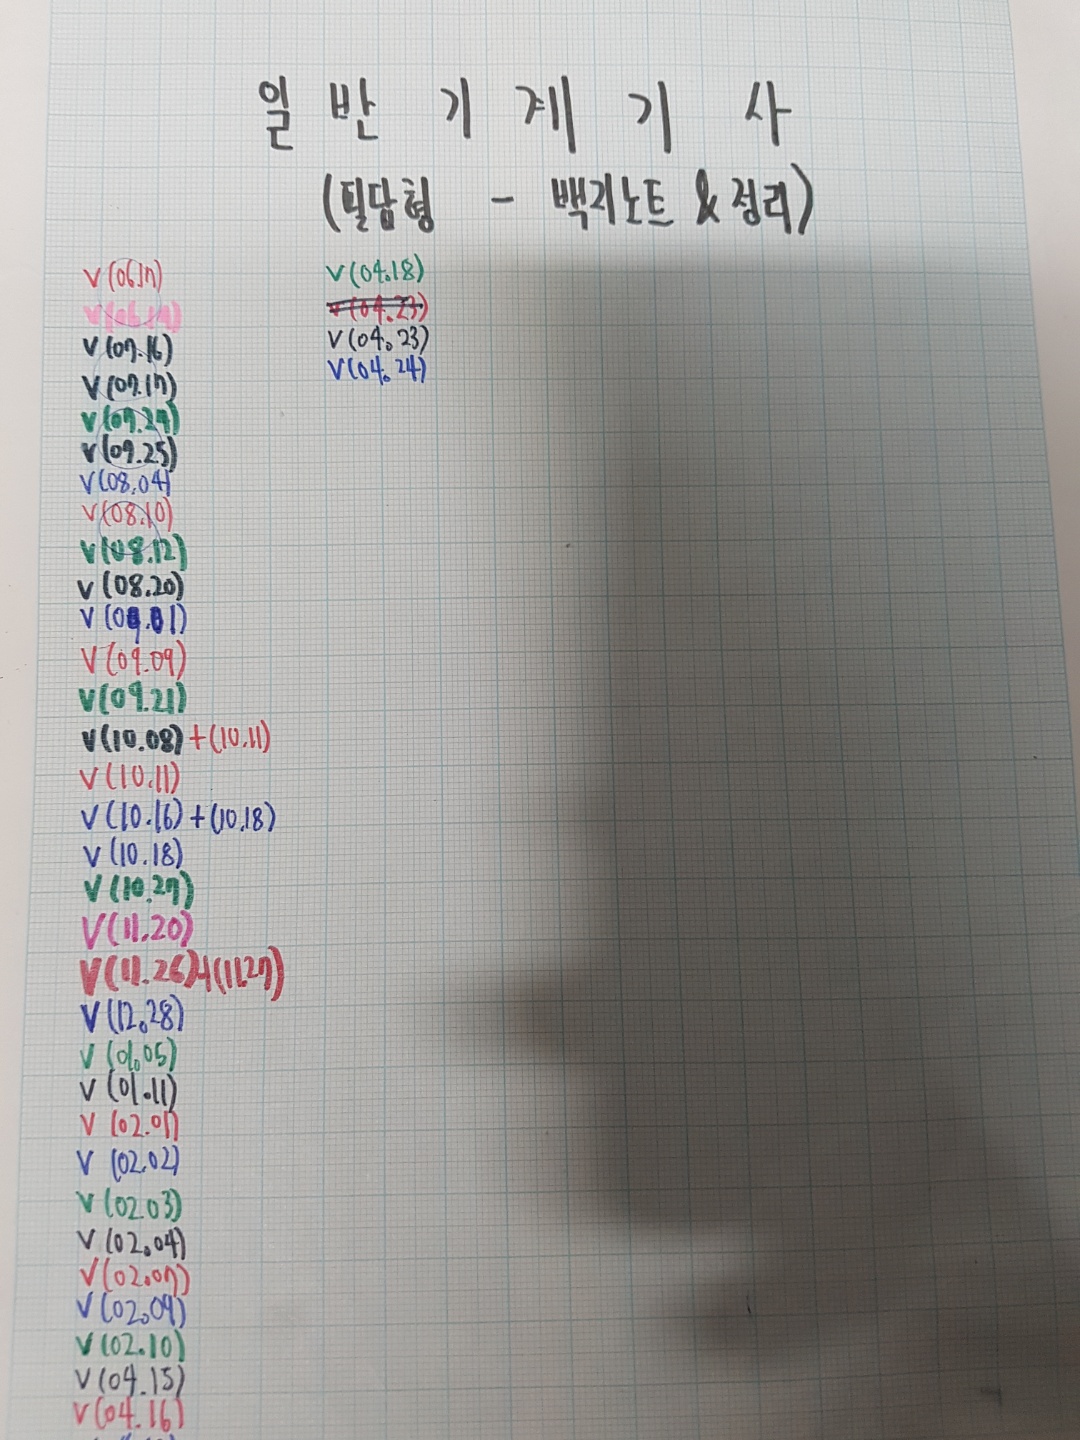 일반기계기사
(필답형 - 백지노트 & 정리)
V (06.17)
V (07.16)
V (07.17)
V (08.04)
V (08.10)
V (08.12)
V (08.20)
V (09.01)
V (09.09)
V (09.21)
V (10.08) + (10.11)
V (10.11)
V (10.16) + (10.18)
V (10.18)
V (10.27)
V (11.20)
V (11.26) + (11.27)
V (12.28)
V (01.05)
V (01.11)
V (02.01)
V (02.02)
V (02.03)
V (02.04)
V (02.07)
V (02.09)
V (02.10)
V (04.15)
V (04.16)
V (04.18)
V (04.23)
V (04.23)
V (04.24)